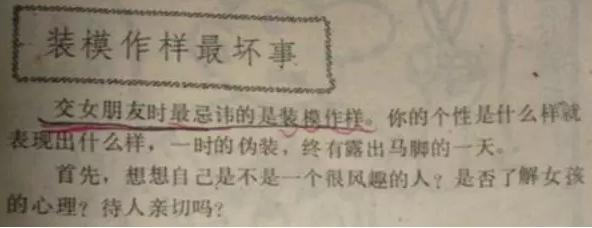 装模作样最坏事
交女朋友时最忌讳的是装模作样。你的个性是什么样就
表现出什么样，一时的伪装，终有露出马脚的一天。
首先，想想自己是不是一个很风趣的人？是否了解女孩
的心理？待人亲切吗？